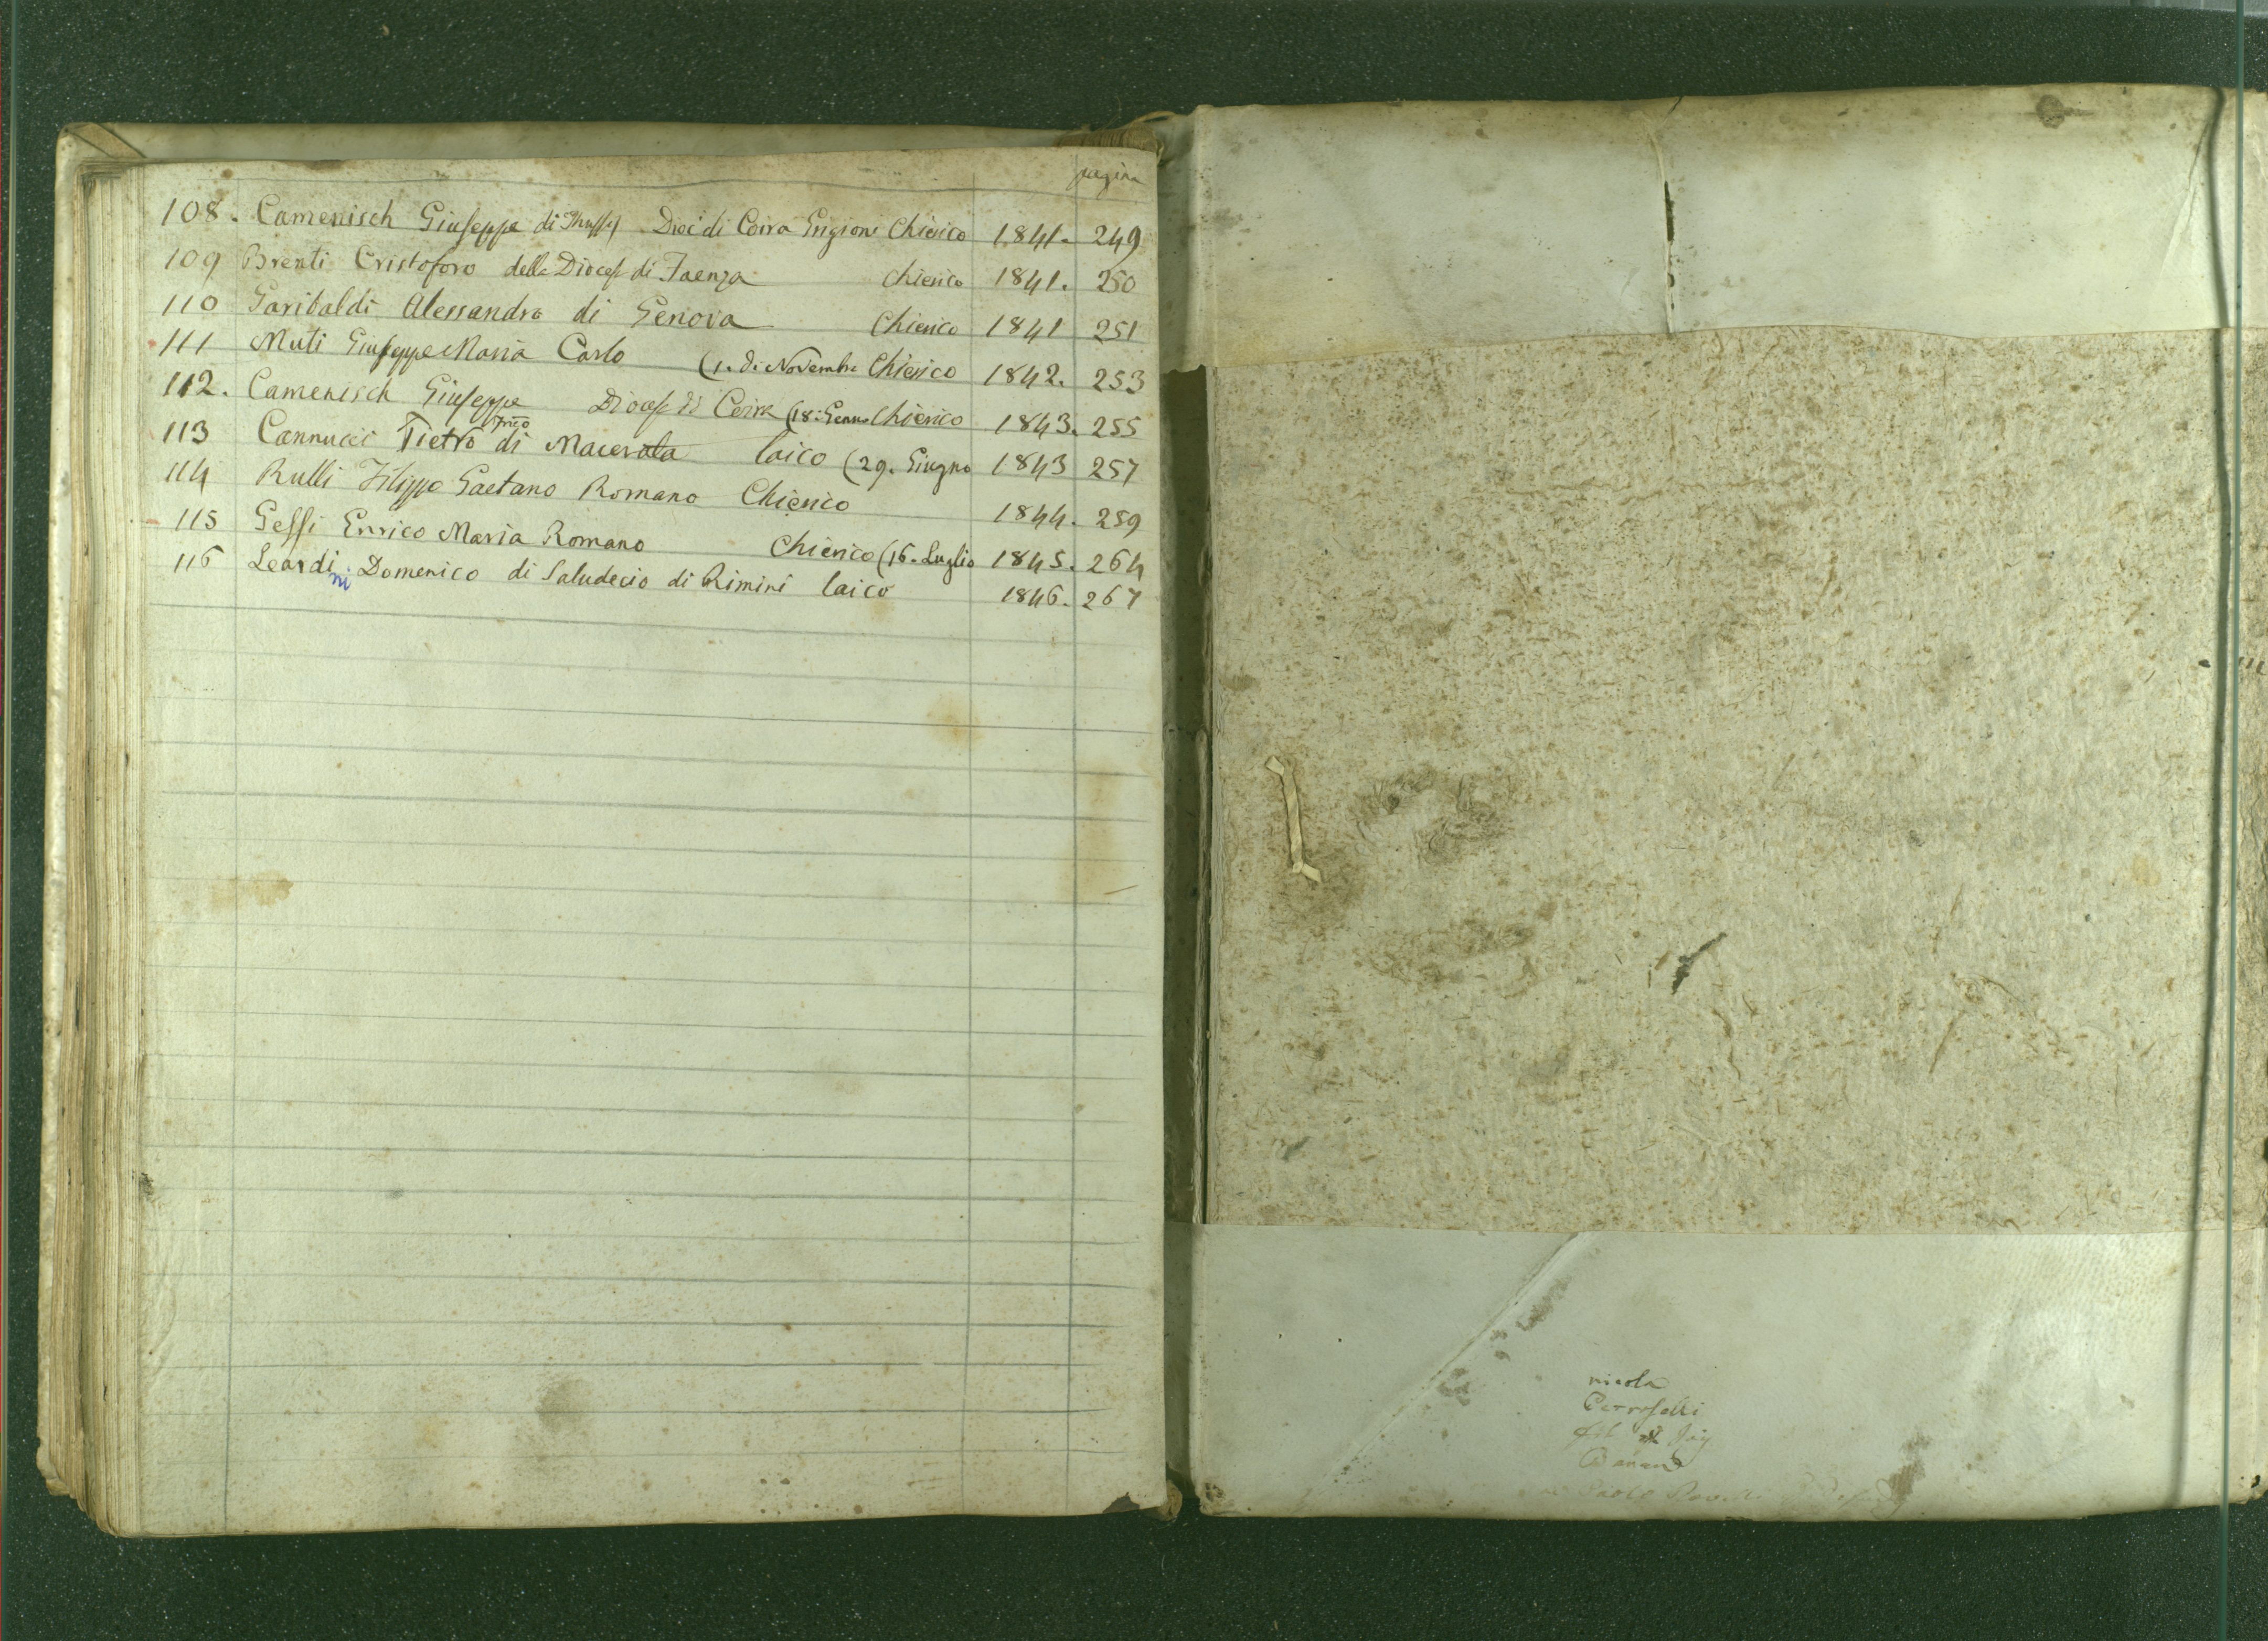 pagina
108. Camenisch Giuseppe di Dioc. di Coira Grigioni Chierico 1841. 249
109 Brenti Cristoforo della Dioces. di Faenza Chierico 1841. 250
110 Garibaldi Alessandro di Genova Chierico 1841 251
111 Muti Giuseppe Maria Carlo (1. di Novembre Chierico 1842. 253
112. Camenisch Giuseppe Dioces. di Coira (18. Genn. Chierico 1843. 255
113 Cannucci Pietro di Macerata laico (29. Giugno 1843 257
114 Rulli Filippo Gaetano Romano Chierico 1844. 259
115 Gessi Enrico Maria Romano Chierico (16. Luglio 1845. 264
116 Leardini Domenico di Saludecio di Rimini laico 1846. 267
nicola